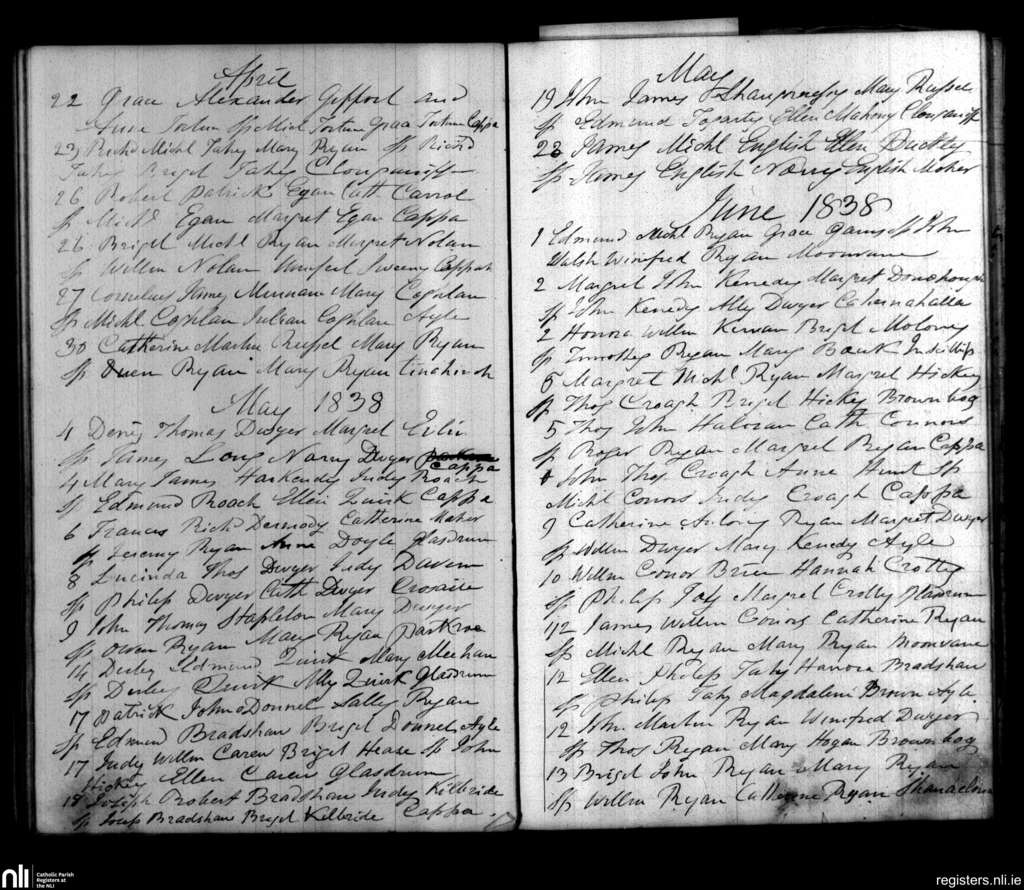 April
22 Grace Alexander Gifford and
Anne Fortun Sp Michl Fortune Grace Fortun Cappa
23 Richd Michl Fahy Mary Ryan Sp Richd
Fahy Brigd Fahy
26 Robert Patrick Egan Cath Carrol
Sp Michl Egan Margret Egan Cappa
26 Brigd Michl Ryan Margret Nolan
Sp Willm Nolan Sweeny
27 Cornelius James Minnan Mary Coghlan
Sp Michl Coghlan Julian Coghlan Ayle
30 Catherine Martin Russel Mary Ryan
Sp Owen Ryan Mary Ryan
May 1838
4 Denis Thomas Dwyer Margret
Sp James Long Norry Dwyer
Cappa
4 Mary James Judy Roach
Sp Edmund Roach Ellen Quirk Cappa
6 Frances Richd Dermody Catherine Maher
Sp Jeremy Ryan Anne Doyle Glasdrum
8 Lucinda Thos Dwyer Judy Davern
Sp Philip Dwyer Cath Dwyer
9 John Thomas Stapleton Mary Dwyer
Sp Owen Ryan Mary Ryan Parkroe
14 Derby Edmund Quirk Mary Meehan
Sp Derby Quirk Ally Quirk Glasdrum
17 Patrick John ODonnel Salley Ryan
Sp Edmund Bradshaw Brigd Donnel Ayle
17 Judy Willm Carew Brigd Hease Sp John
Hickey Ellen Carew Glasdrum
18 Joseph Robert Bradshaw Judy Kilbride
Sp Josep Bradshaw Brigd Kilbride Cappa
May
19 John James Shaughnessy Mary Russel
Sp Edmund Fogarty Ellen Mahony
23 James Michl English Ellen Buckley
Sp James English Norry English Moher
June 1838
1 Edmund Michl Ryan Grace Sp John
Walsh Winefred Ryan Moonvane
2 Margret John Kenedy Margret Donohough
Sp John Kenedy Ally Dwyer Cahernahalla
2 Honora Willm Kirwan Brigd Moloney
Sp Timothy Ryan Mary
5 Margret Michl Ryan Margret Hickey
Sp Thos Croagh Brigd Hickey Brownbog
5 Thos John Haloran Cath Connors
Sp Roger Ryan Margret Ryan Cappa
John Thos Croagh Anne Hunt Sp
Michl Conors Judy Croagh Cappa
9 Catherine Ryan Margret Dwyer
Sp Willm Dwyer Mary Kenedy Ayle
10 Willm Conor Brien Hannah Crotty
Sp Philip Margret Crotty Glasdrum
12 James Willm Conors Catherine Ryan
Sp Michl Ryan Mary Ryan Moonvane
12 Ellen Philip Fahy Hanora Bradshaw
Sp Philip Fahy Magdalene Brown Ayle
12 John Martin Ryan Winefred Dwyer
Sp Thos Ryan Mary Hogan Brownbog
13 Brigd John Ryan Mary Ryan
Sp Willm Ryan Catherine Ryan
nli Catholic Parish
Registers at
the NLI
registers.nli.ie